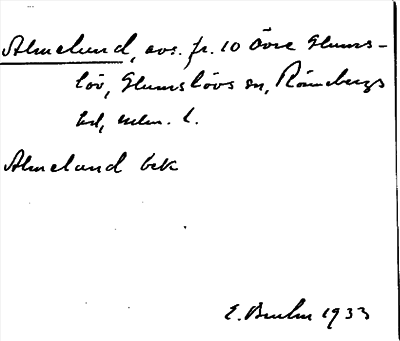 Almelund, avs. fr. 10 Övre Glums-
löv, Glumslövs sn, Rönnebergs
hd, Malm. l.
Almelund bek
E. Bruhn 1933